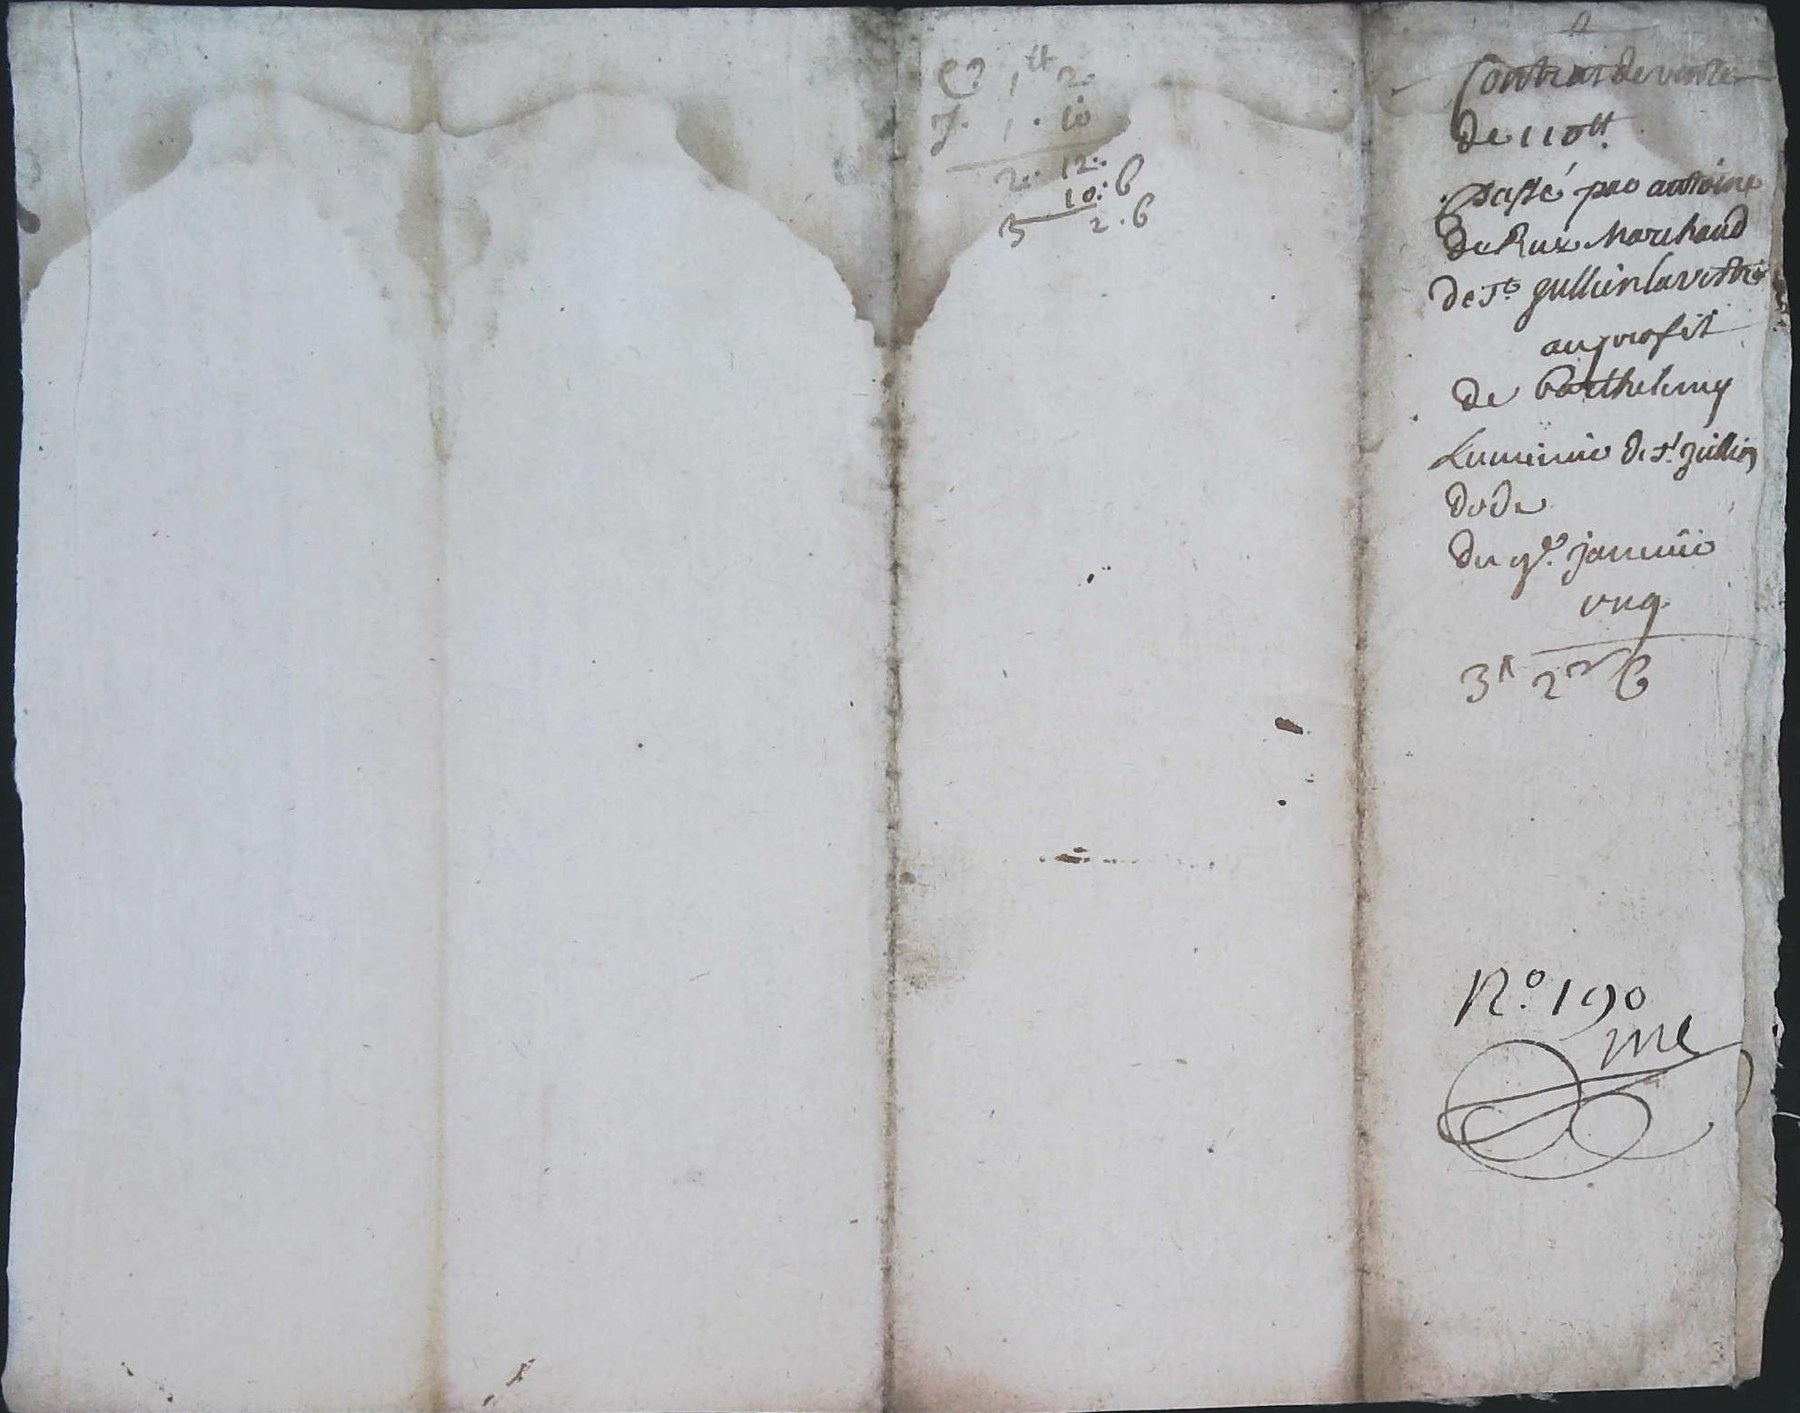 C? 1tt 2.
J. 1 . 10
2. 12.
10. 6
3 2 . 6
Contrat de vente
de 110tt.
passé par antoine
de Rux Marchand
de St. Jullien la vestre
au profit
de barthelemy
de St. Jullien
dode
du 9e. janvier
3tt 2s 6
No. 190
me